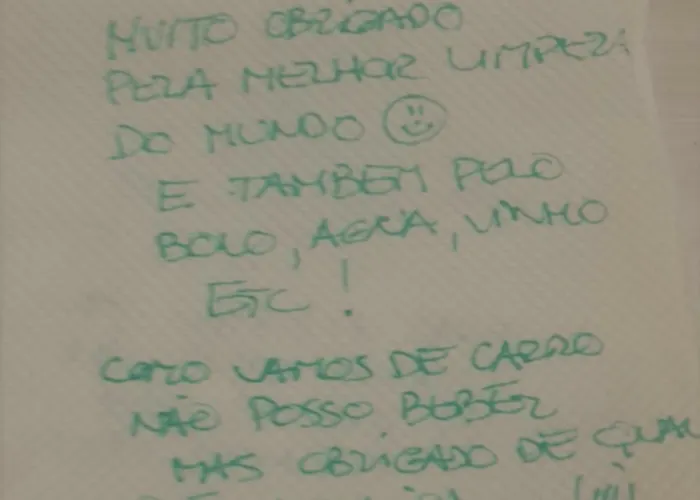 MUITO OBRIGADO
PELA MELHOR LIMPEZA
DO MUNDO
E TAMBEM PELO
BOLO, AGUA, VINHO
ETC !
COMO VAMOS DE CARRO
NÃO POSSO BEBER
MAS OBRIGADO DE QUAL